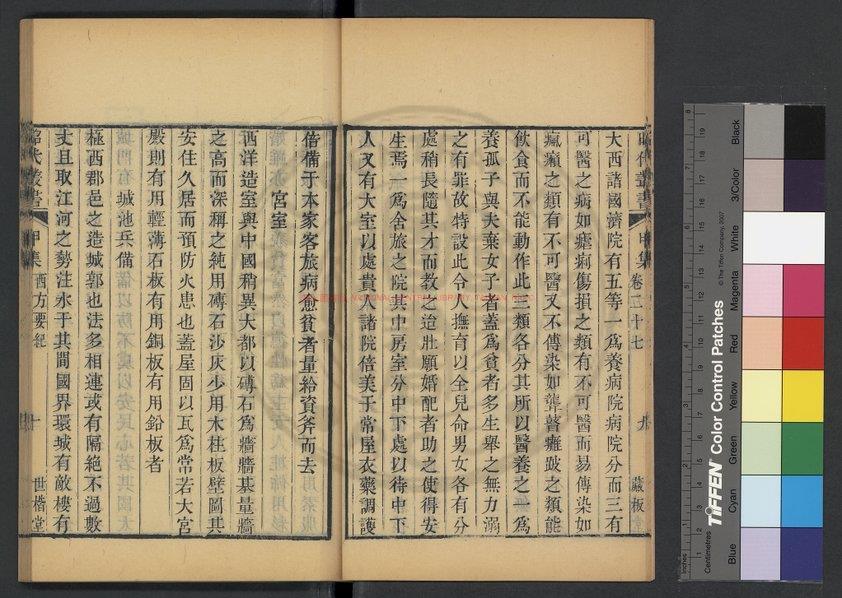 昭代叢書 甲集 卷二十七 九 藏板
大西諸國濟院有五等一爲養病院病院分而三有
可醫之病如瘧痢傷損之類有不可醫而易傳染如
瘋癩之類有不可醫又不傳染如聾瞽癱跛之類能
飲食而不能動作此三類各分其所以醫養之一爲
養孤子與夫棄女子者蓋爲貧者多生舉之無力溺
之有罪故特設此令人撫育以全兒命男女各有分
處稍長隨其才而教之迨壯願婚配者助之使得安
生焉一爲舍旅之院其中房室分中下處以待中下
人又有大室以處貴人諸院倍美于常屋衣藥調護
偕備于本家客旅病愈貧者量給資斧而去
宮室
西洋造室與中國稍異大都以磚石爲牆牆基量牆
之高而深稱之純用磚石沙灰少用木柱板壁圖其
安住久居而預防火患也蓋屋固以瓦爲常若大宮
殿則有用輕薄石板有用銅板有用鉛板者
城池兵備
極西郡邑之造城郭也法多相連或有隔絕不過數
丈且取江河之勢注水于其間國界環城有敵樓有
昭代叢書 甲集 西方要紀 十 世楷堂
Black
3/Color
White
Magenta
Red
Yellow
Green
Cyan
Blue
© The Tiffen Company, 2007
TIFFEN Color Control Patches
Centimetres
Inches